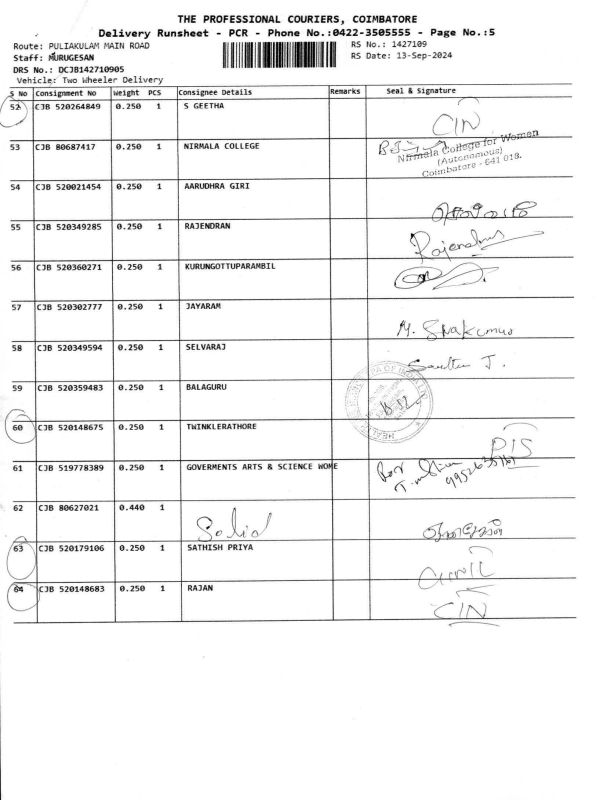 THE PROFESSIONAL COURIERS, COIMBATORE
Delivery Runsheet - PCR - Phone No.:0422-3505555 - Page No.:5
Route: PULIAKULAM MAIN ROAD RS No.: 1427109
Staff: MURUGESAN RS Date: 13-Sep-2024
DRS No.: DCJB142710905
Vehicle: Two Wheeler Delivery
S No Consignment No Weight PCS Consignee Details Remarks Seal & Signature
52 CJB 520264849 0.250 1 S GEETHA
CIN
53 CJB 80687417 0.250 1 NIRMALA COLLEGE
Nirmala College for Women
(Autonomous)
Coimbatore - 641 018.
54 CJB 520021454 0.250 1 AARUDHRA GIRI
55 CJB 520349285 0.250 1 RAJENDRAN
56 CJB 520360271 0.250 1 KURUNGOTTUPARAMBIL
57 CJB 520302777 0.250 1 JAYARAM
58 CJB 520349594 0.250 1 SELVARAJ
59 CJB 520359483 0.250 1 BALAGURU
60 CJB 520148675 0.250 1 TWINKLERATHORE
61 CJB 519778389 0.250 1 GOVERMENTS ARTS & SCIENCE WOME
62 CJB 80627021 0.440 1
Solid
63 CJB 520179106 0.250 1 SATHISH PRIYA
64 CJB 520148683 0.250 1 RAJAN
CIN